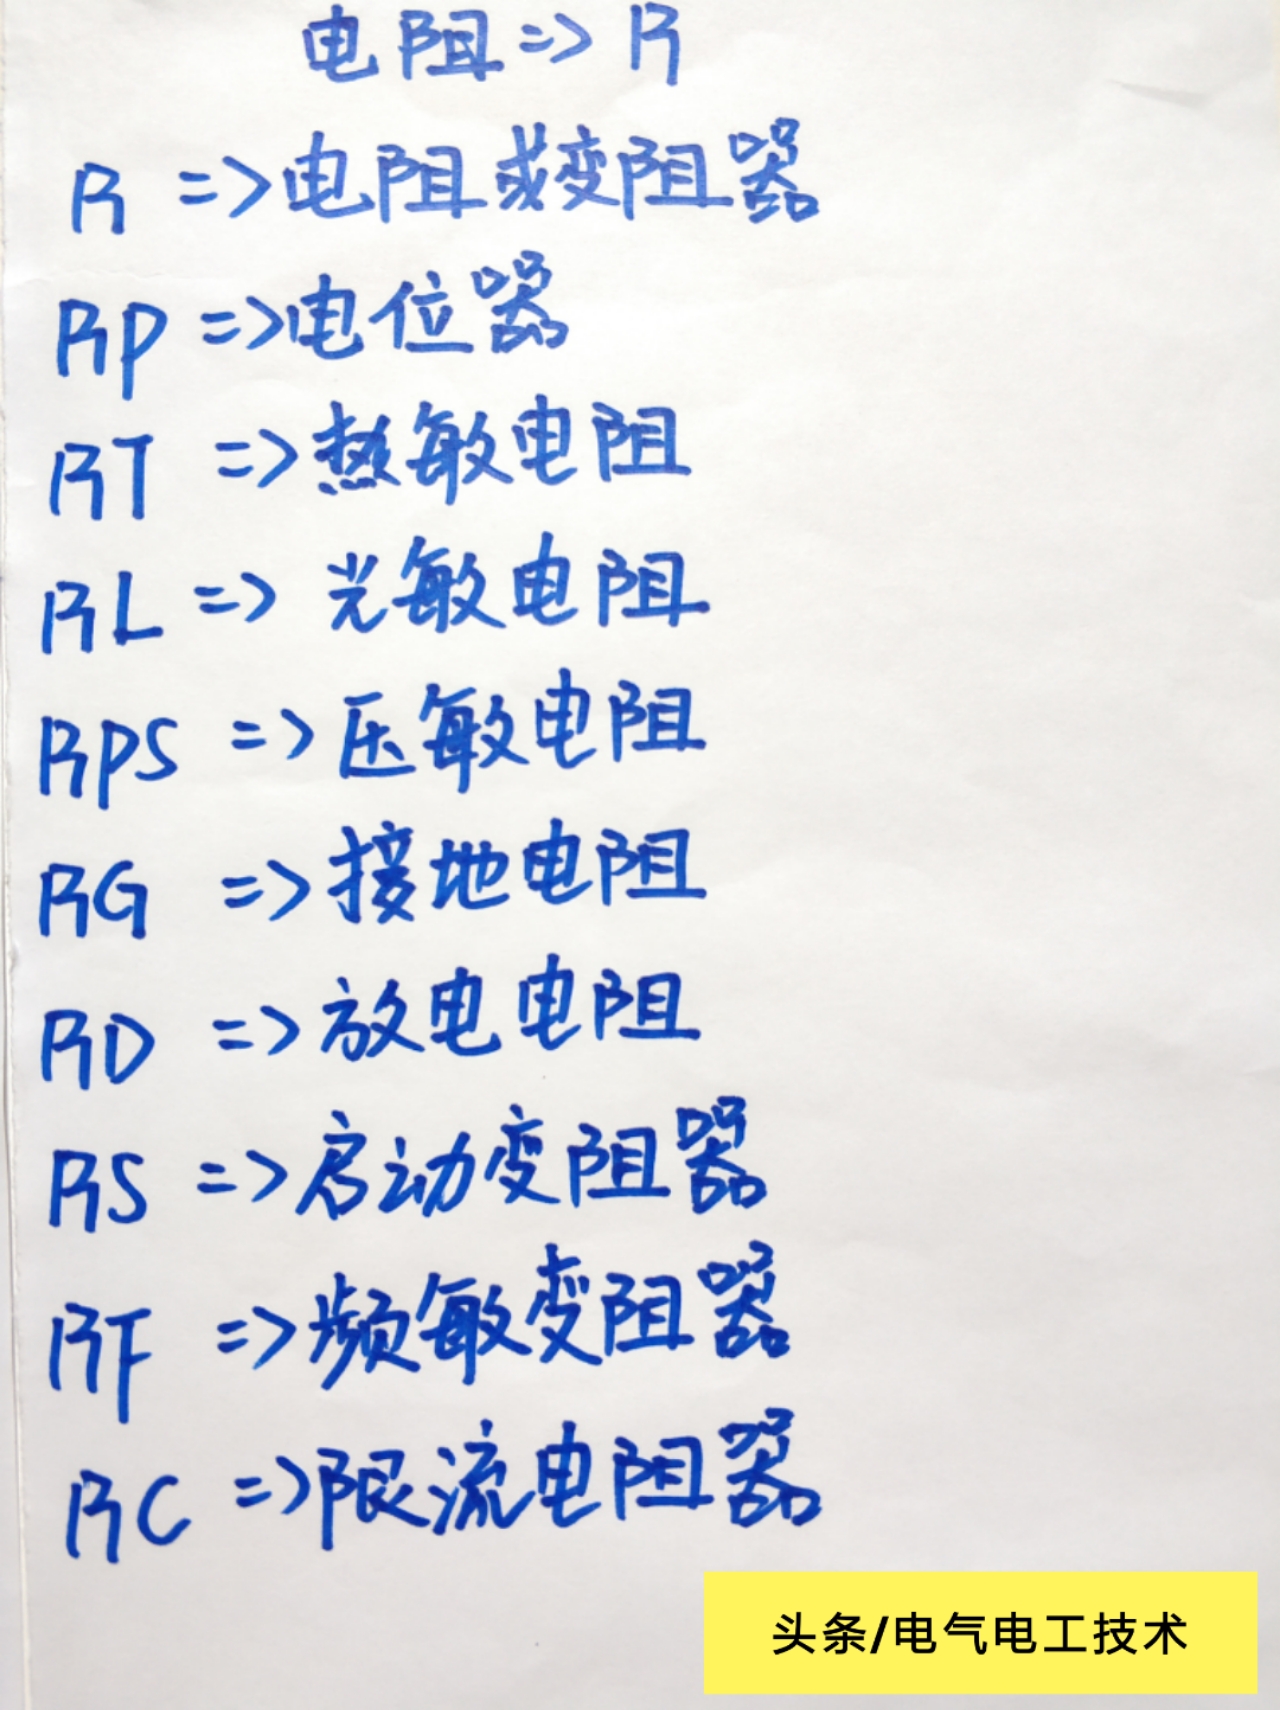 电阻=>R
R=>电阻或变阻器
RP=>电位器
RT=>热敏电阻
RL=>光敏电阻
RPS=>压敏电阻
RG=>接地电阻
RD=>放电电阻
RS=>启动变阻器
RF=>频敏变阻器
RC=>限流电阻器
头条/电气电工技术